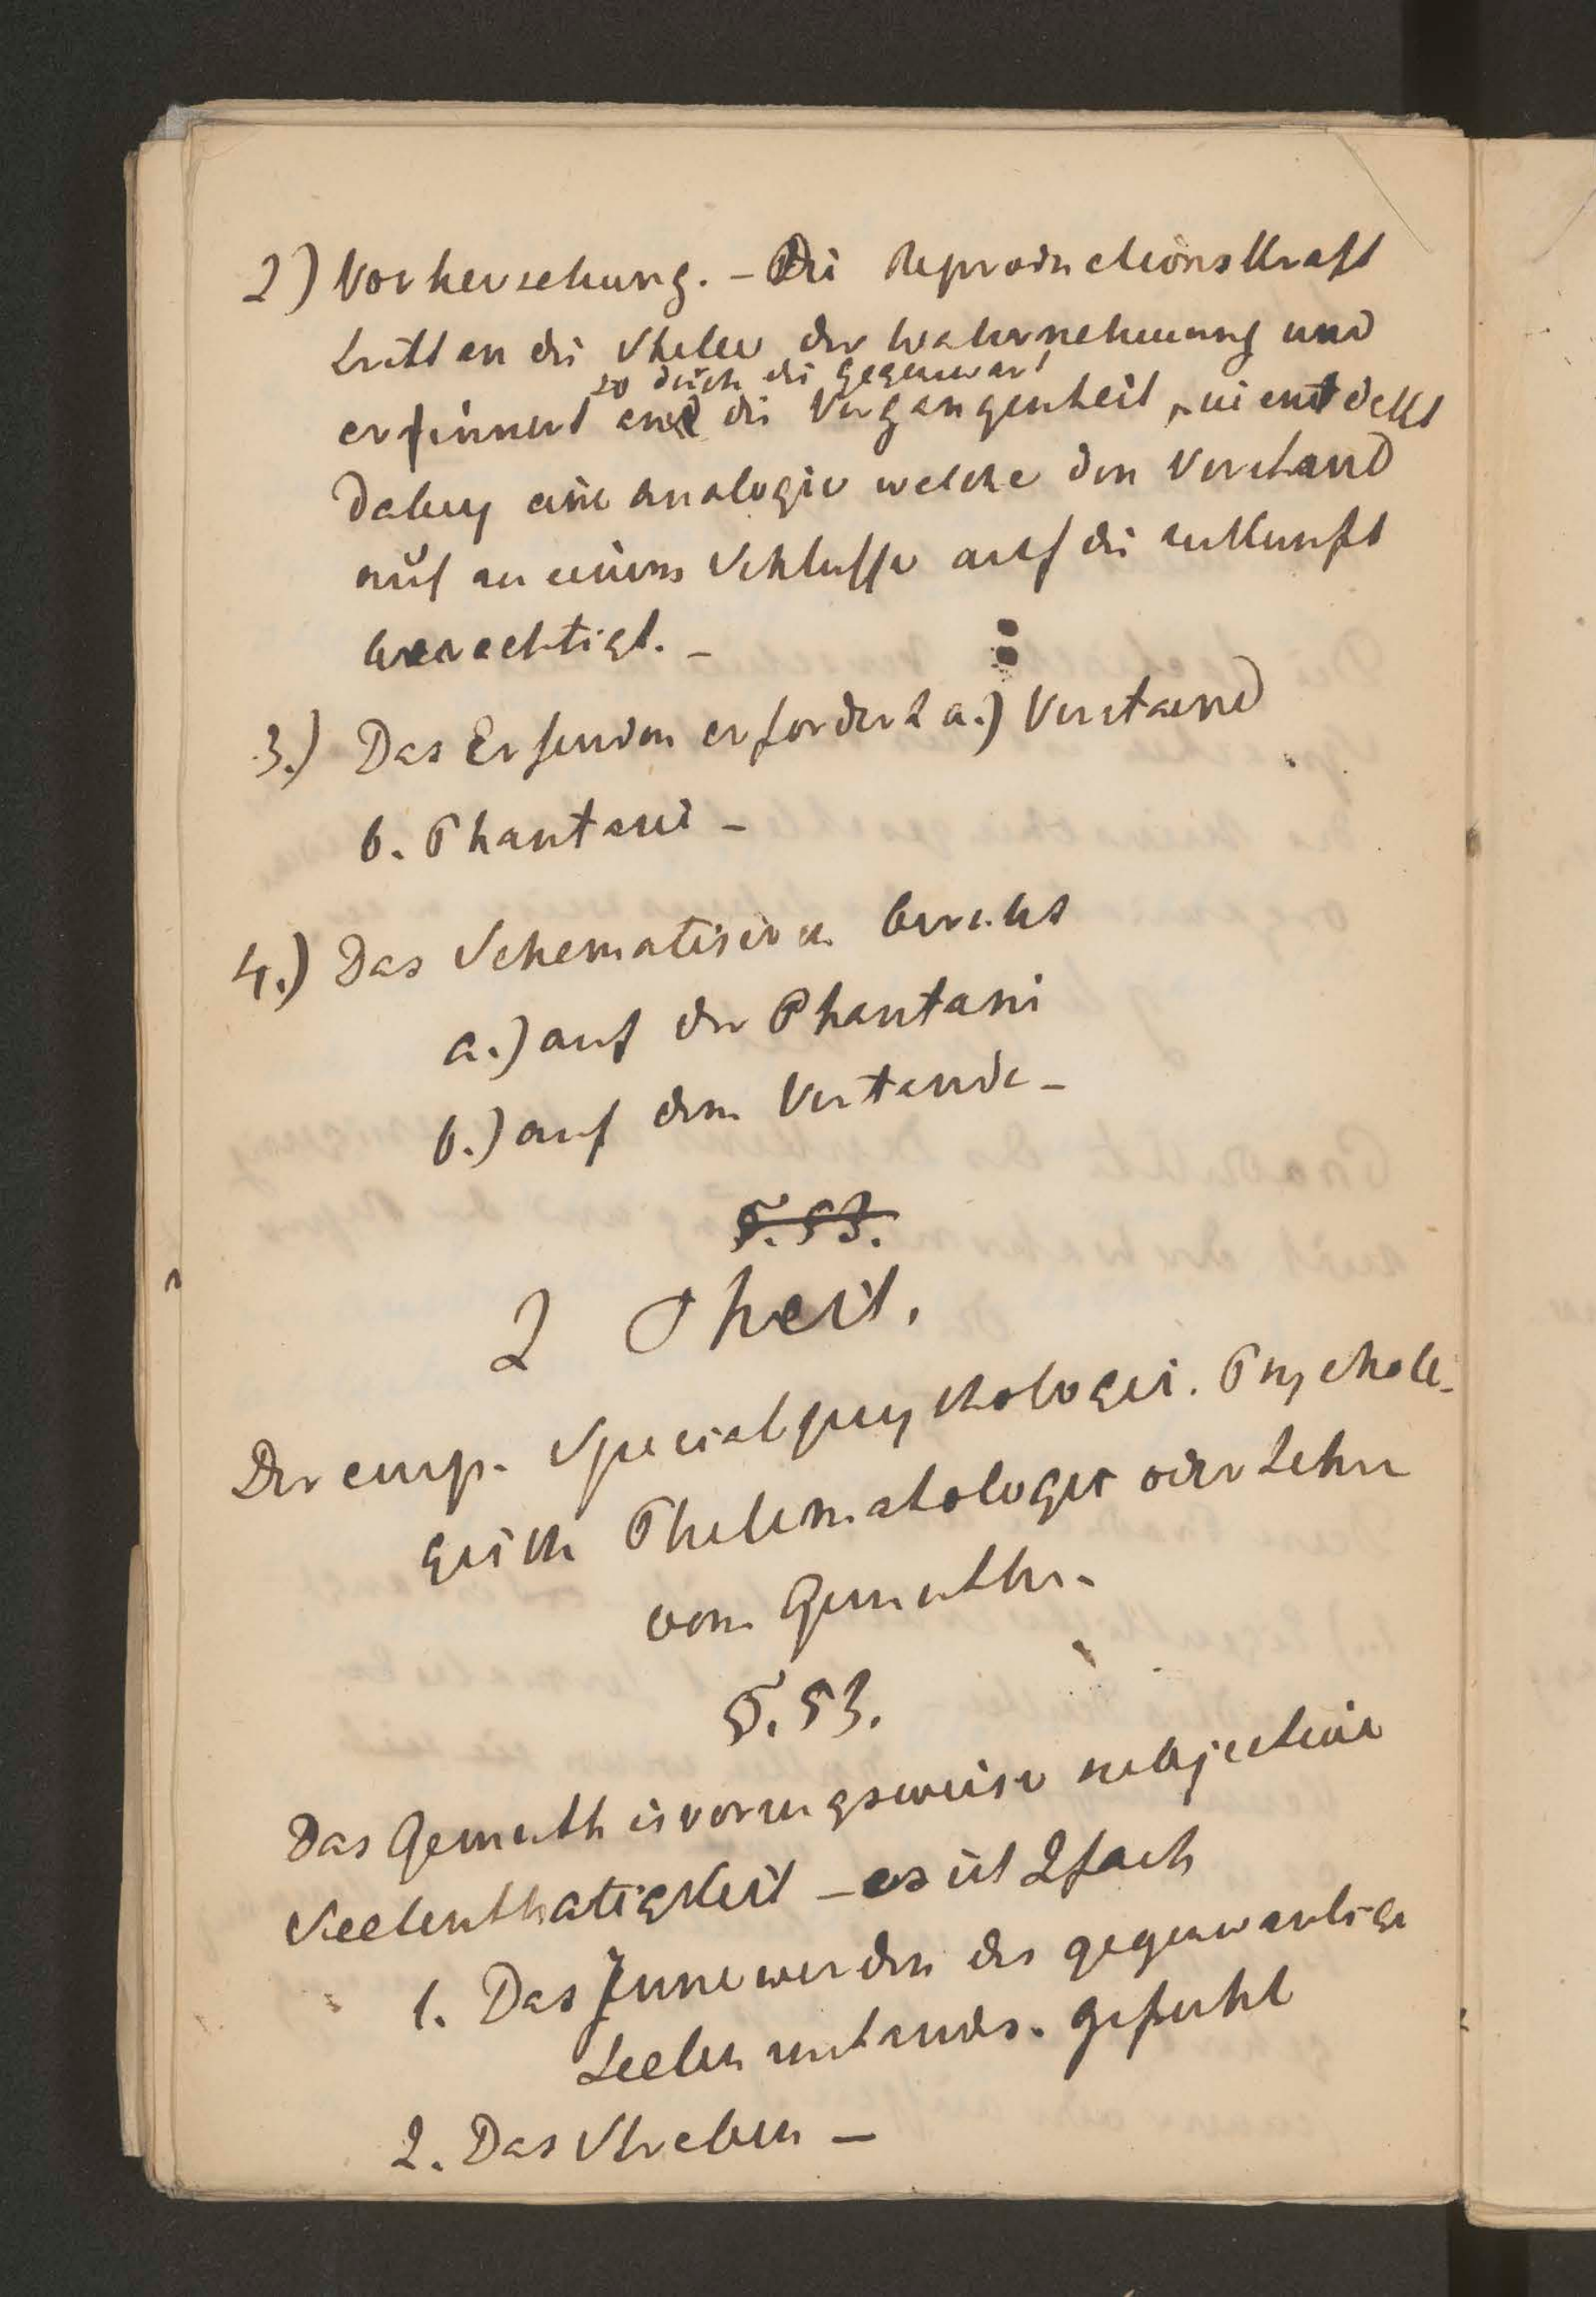 2) Vorhersehung. – Die Reproductionskraft
tritt an die Stelle der Wahrnehmung und
so durch die Gegenwart
erinnert an die Vergangenheit, sie entdeckt
dabey eine Analogie welche den Verstand
auf zu einem Schlusse auf die zukunft
berechtigt. –
3.) Das Erfinden erfordert a.) Verstand
b. Phantasie –
4.) Das Schematisiren beruht
a.) auf der Phantasie
b.) auf dem Verstande –
§. 53.
2 Theil.
Der emp. Specialpsychologie. Psycholo-
gisch Thelematologie oder Lehre
vom Gemuthe.
§. 53.
Das Gemuth is vorzugsweise subjective
Seelenthatigkeit – es ist 2fach
1. Das Innewerden des gegenwartige
Seelenzustandes. Gefuhl
2. Das Streben –